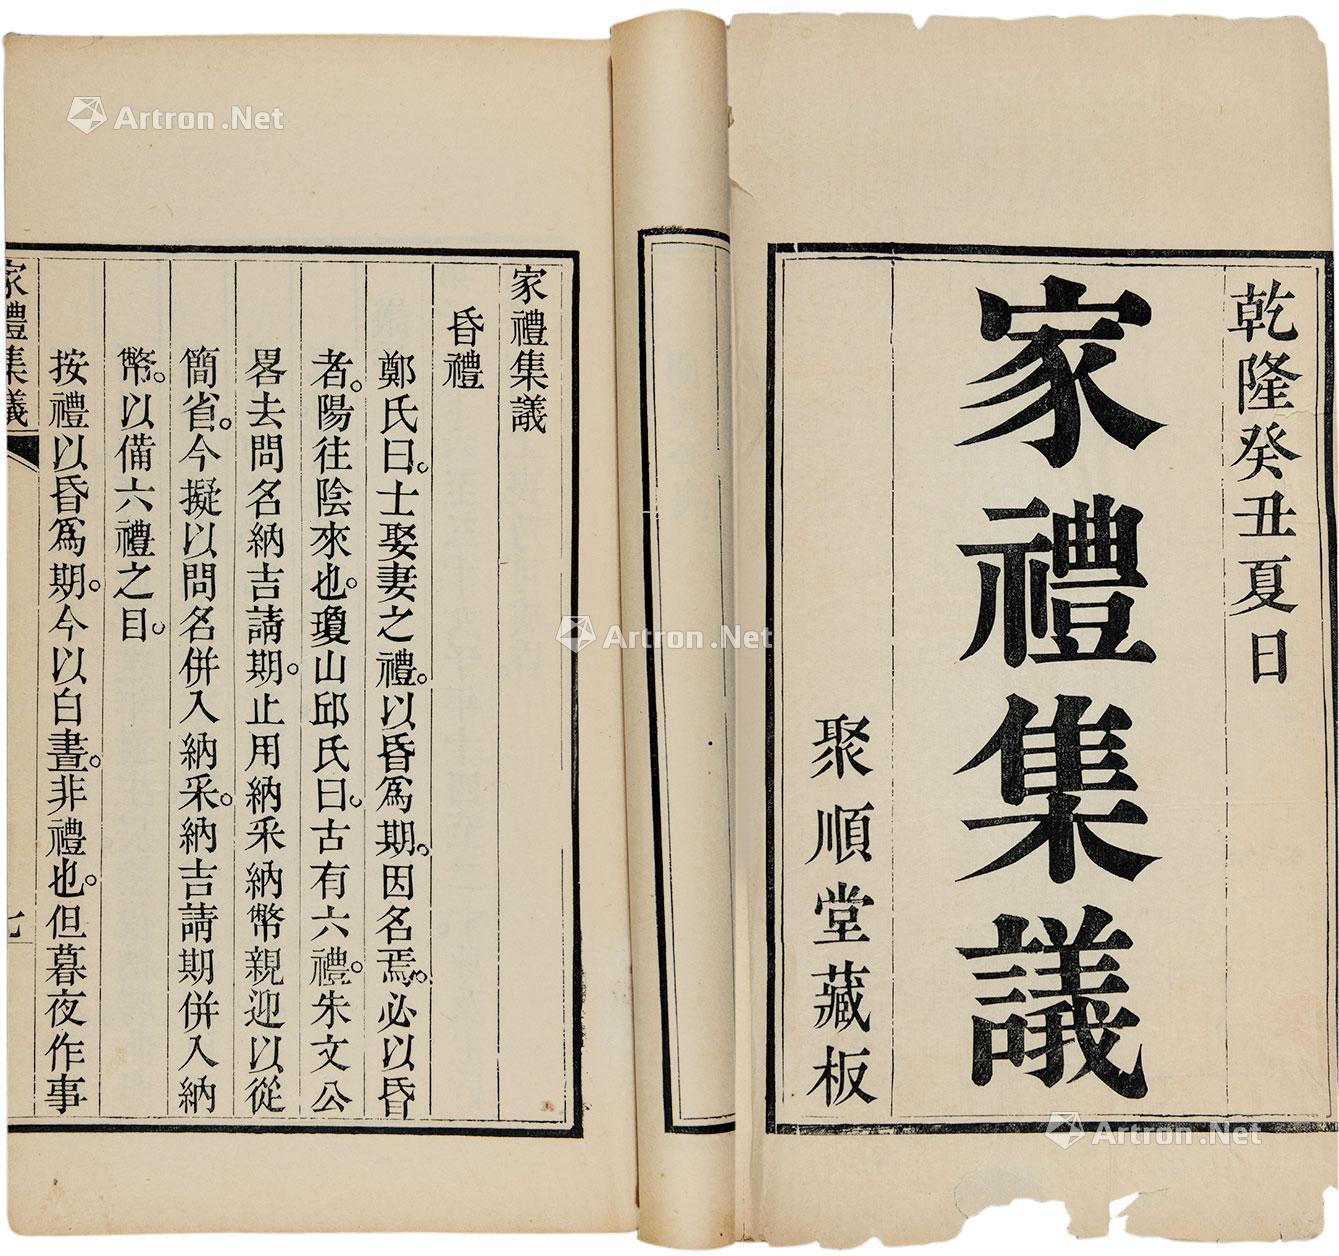 乾隆癸丑夏日
家禮集議
聚順堂藏板
家禮集議
昏禮
鄭氏曰。士娶妻之禮。以昏爲期。因名焉。必以昏
者。陽往陰來也。瓊山邱氏曰。古有六禮。朱文公
畧去問名納吉請期。止用納采納幣親迎以從
簡省。今擬以問名併入納采。納吉請期併入納
幣。以備六禮之目。
按禮以昏爲期。今以白晝。非禮也。但暮夜作事
家禮集議
七
Artron.Net
Artron.Net
Artron.Net